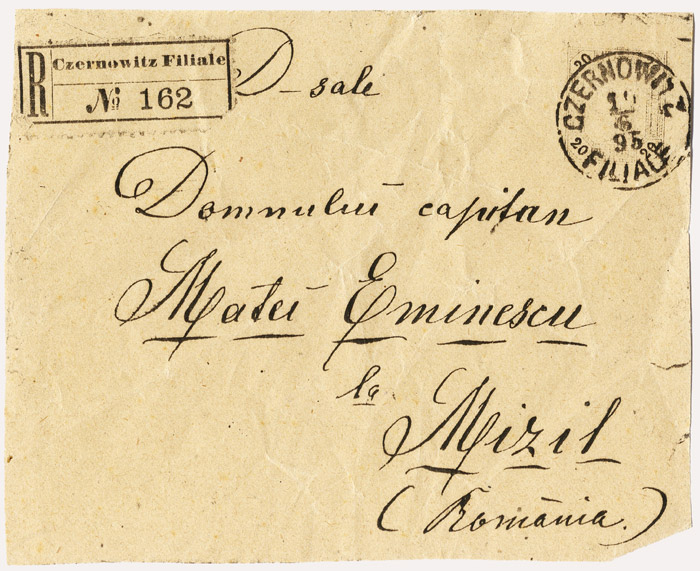 R
Czernowitz Filiale
№ 162
D-sale
CZERNOWITZ
6
95
FILIALE
20
20
20
Domnului capitan
Matei Eminescu
la
Mizil
(România.)